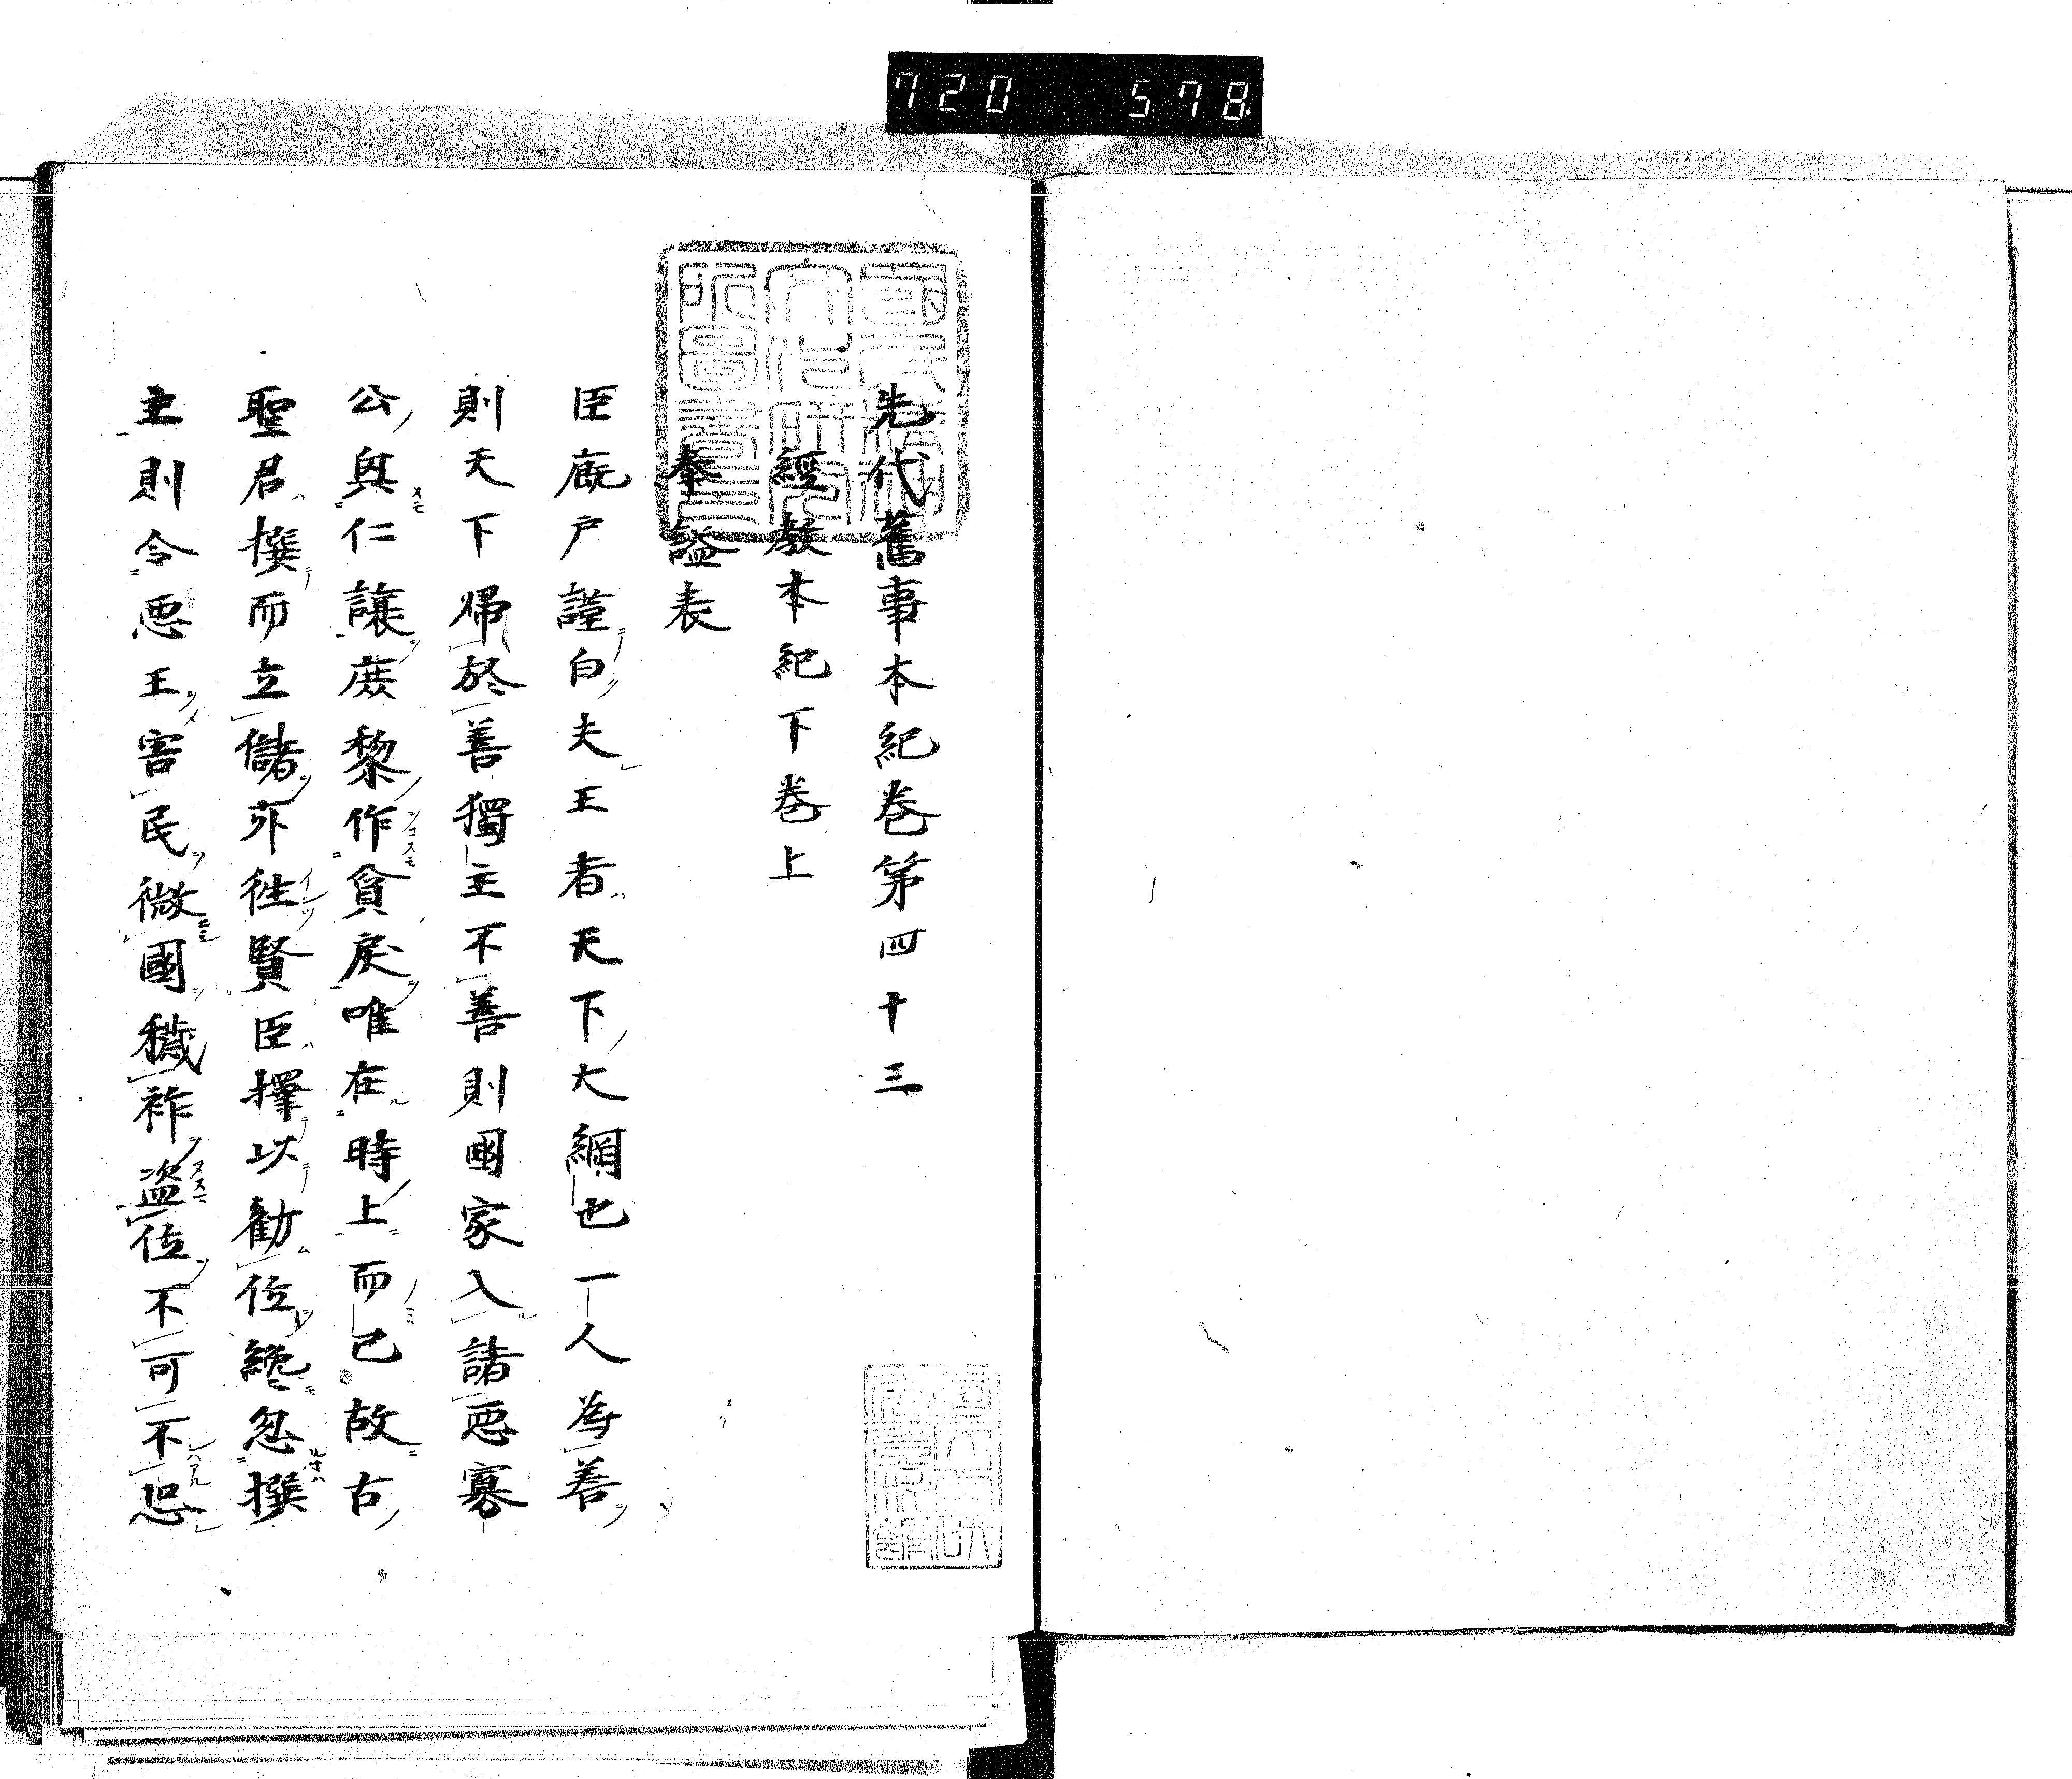 720 578
先代舊事本紀巻第四十三
經教本紀下巻上
奉謚表
臣廐戸謹白夫王者天下大綱也一人為善
則天下帰於善獨主不善則國家入諸悪寡
公與仁讓庶黎作貪戻唯在時上而已故古
聖君撰而立儲亦徃賢臣擇以勧位纔忽撰
主則令悪王害民微國穢祚盗位不可不忌